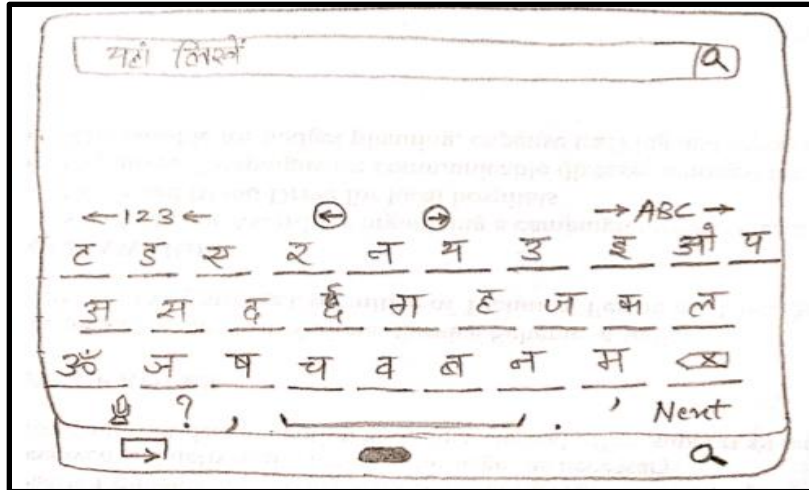 यहां लिखें
←123← ← → →ABC→
ट ड ए र न य उ इ ओ प
अ स द ई ग ह ज क ल
ॐ ज ष च व ब न म
? , . ' Next